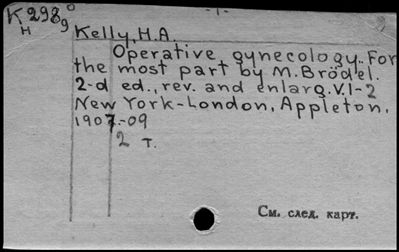 - 1 -
K 298/9 0
н
Kelly, H.A.
Operative gynecology. For
the most part by M. Brödel.
2-d ed., rev. and enlarg. V. 1-2
New York-London, Appleton,
1907-09
2 т.
См. след. карт.